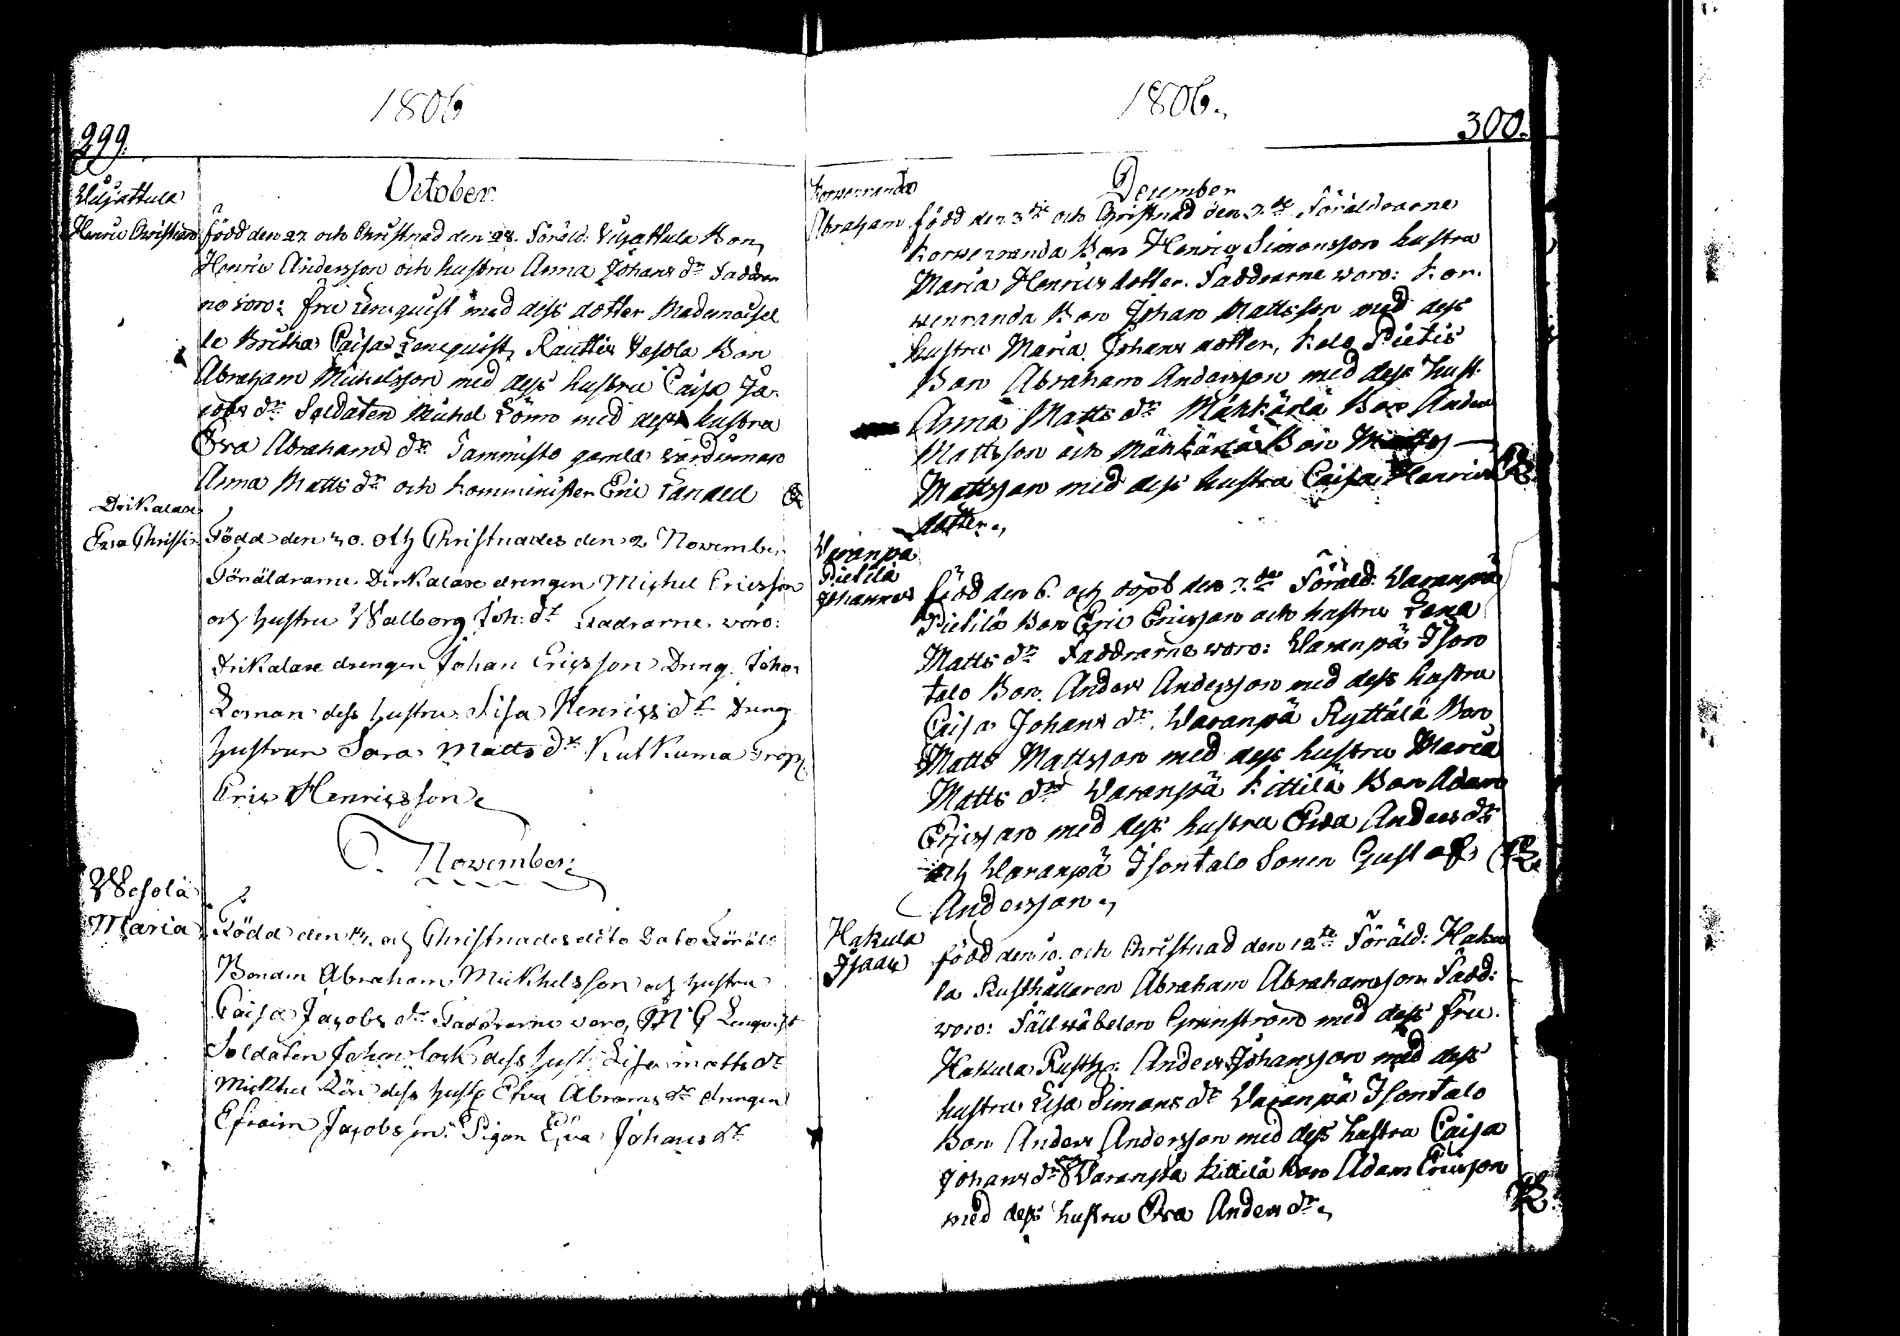 1806
299.
October.
Viljattula
Henric Christian
född den 27 och Christnad den 28. Föräld: Viljattula Bon,
Henric Andersson och hustru Anna Johans dr Faddrar
ne voro: fru Lenquist med dess dotter Mademoisel
le Britha Caisa Lenquist, Rautlis Vesola Bon
Abraham Michelsson med dess hustru Caisa Ja-
cobs dr Soldaten Michel Lönn med dess hustru
Eva Abrahams dr Tammisto gamla värdinnan
Anna Matts dr och Komminister Eric
Drikalase
Eva Christi.
Född den 30. och Christnades den 2 November
Föräldrarne Drikalase drengen Michel Ericsson
och hustru Walborg Joh: dr Faddrarne voro:
Drikalase drengen Johan Ericsson Dreng. Joha-
Loman dess hustru Lisa Henrics dr Dreng
hustrun Sara Matts dr Kutkuma
Eric Henricsson
November
Wesola
Maria
Född den 14. och Christnades dito Dato Föräld:
Bonden Abraham Mickhelsson och hustru
Caisa Jacobs dr Faddrarne voro, Lenqvist
Soldaten Johan dess hust: Lisa matts dr
Mickhel Lön dess hust: Efva Abrams dr drengen
Efraim Jacobs son: Pigan Efva Johans dr
1806.
300.
December
Korvenranda
Abraham
född den 3die och Christnad den 7.de Föräldrarne
Korvenranda Bon Henric Simonsson hustru
Maria Henrics dotter. Faddrarne voro: Kor-
venranda Bon Johan Mattsson med dess
hustru Maria Johans dotter, Kalo Pietis
Bon Abraham Andersson med dess Hust.
Anna Matts dr Mäkkärlä Bon Anders
Mattsson och Mäkkärlä Bon Matts
Mattsson med dess hustru Caisa Henrics
dotter.,
Varanpä
Pietilä
Johannes
född den 6. och döpt den 7.de Föräld: Varanpä
Pietilä Bon Eric Ericsson och hustru Lena
Matts dr Faddrarne voro: Varanpä Ison
talo Bon Anders Andersson med dess hustru
Caisa Johans dr. Varanpä Ryttälä Bon
Matts Mattsson med dess hustru Maria
Matts dr Varanpä Kittilä Bon Adam
Ericsson med dess hustru Eva Anders dr
och Varanpä Isontalo Sonen Gustaf
Andersson.,
Hakula
Isaac
född den 10. och Christnad den 12te Föräld: Haku
la Rusthållaren Abraham Abrahamsson. Fadd:
voro: Fältväbelen Grönstrand med dess fru.
Hakula Rusth: Anders Johansson med dess
hustru Lisa Simons dr Varanpä Isontalo
Bon Anders Andersson med dess hustru Caisa
Johans dr och Varanpä Kittilä Bon Adam Ericsson
med dess hustru Eva Anders dr.,